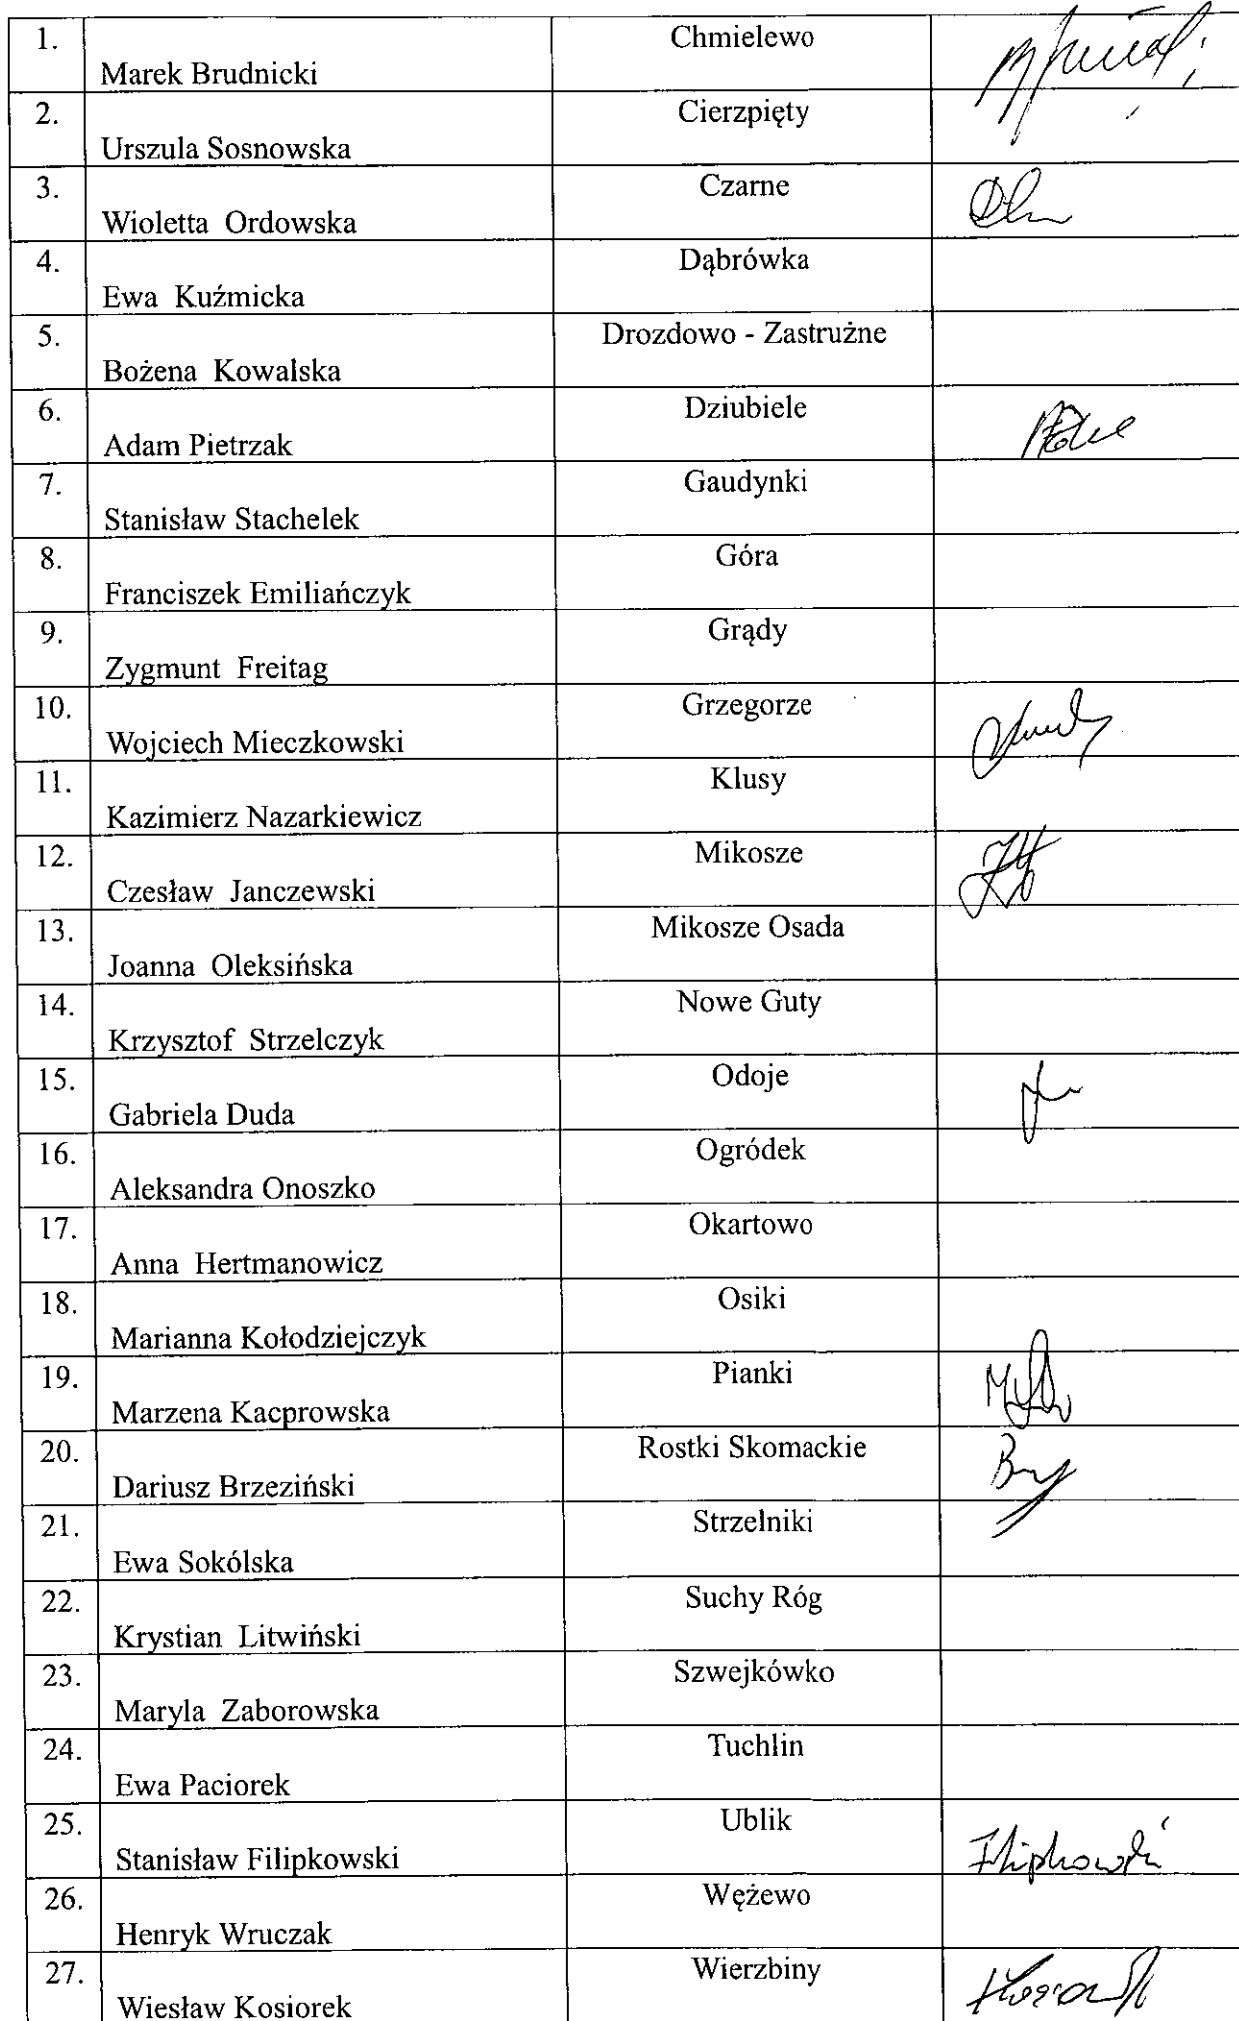 1. Marek Brudnicki Chmielewo
2. Urszula Sosnowska Cierzpięty
3. Wioletta Ordowska Czarne
4. Ewa Kuźmicka Dąbrówka
5. Bożena Kowalska Drozdowo - Zastrużne
6. Adam Pietrzak Dziubiele
7. Stanisław Stachelek Gaudynki
8. Franciszek Emiliańczyk Góra
9. Zygmunt Freitag Grądy
10. Wojciech Mieczkowski Grzegorze
11. Kazimierz Nazarkiewicz Klusy
12. Czesław Janczewski Mikosze
13. Joanna Oleksińska Mikosze Osada
14. Krzysztof Strzelczyk Nowe Guty
15. Gabriela Duda Odoje
16. Aleksandra Onoszko Ogródek
17. Anna Hertmanowicz Okartowo
18. Marianna Kołodziejczyk Osiki
19. Marzena Kacprowska Pianki
20. Dariusz Brzeziński Rostki Skomackie
21. Ewa Sokólska Strzelniki
22. Krystian Litwiński Suchy Róg
23. Maryla Zaborowska Szwejkówko
24. Ewa Paciorek Tuchlin
25. Stanisław Filipkowski Ublik Filipkowski
26. Henryk Wruczak Wężewo
27. Wiesław Kosiorek Wierzbiny